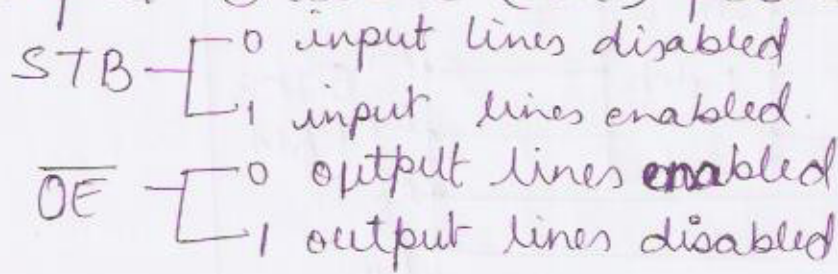 STB 0 input lines disabled
1 input lines enabled.
O̅E̅ 0 output lines enabled
1 output lines disabled